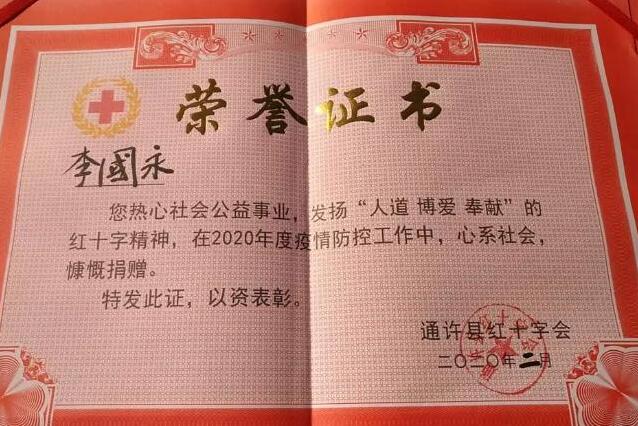 荣誉证书
李國永
您热心社会公益事业，发扬“人道 博爱 奉献”的
红十字精神，在2020年度疫情防控工作中，心系社会，
慷慨捐赠。
特发此证，以资表彰。
通许县红十字会
二〇二〇年二月